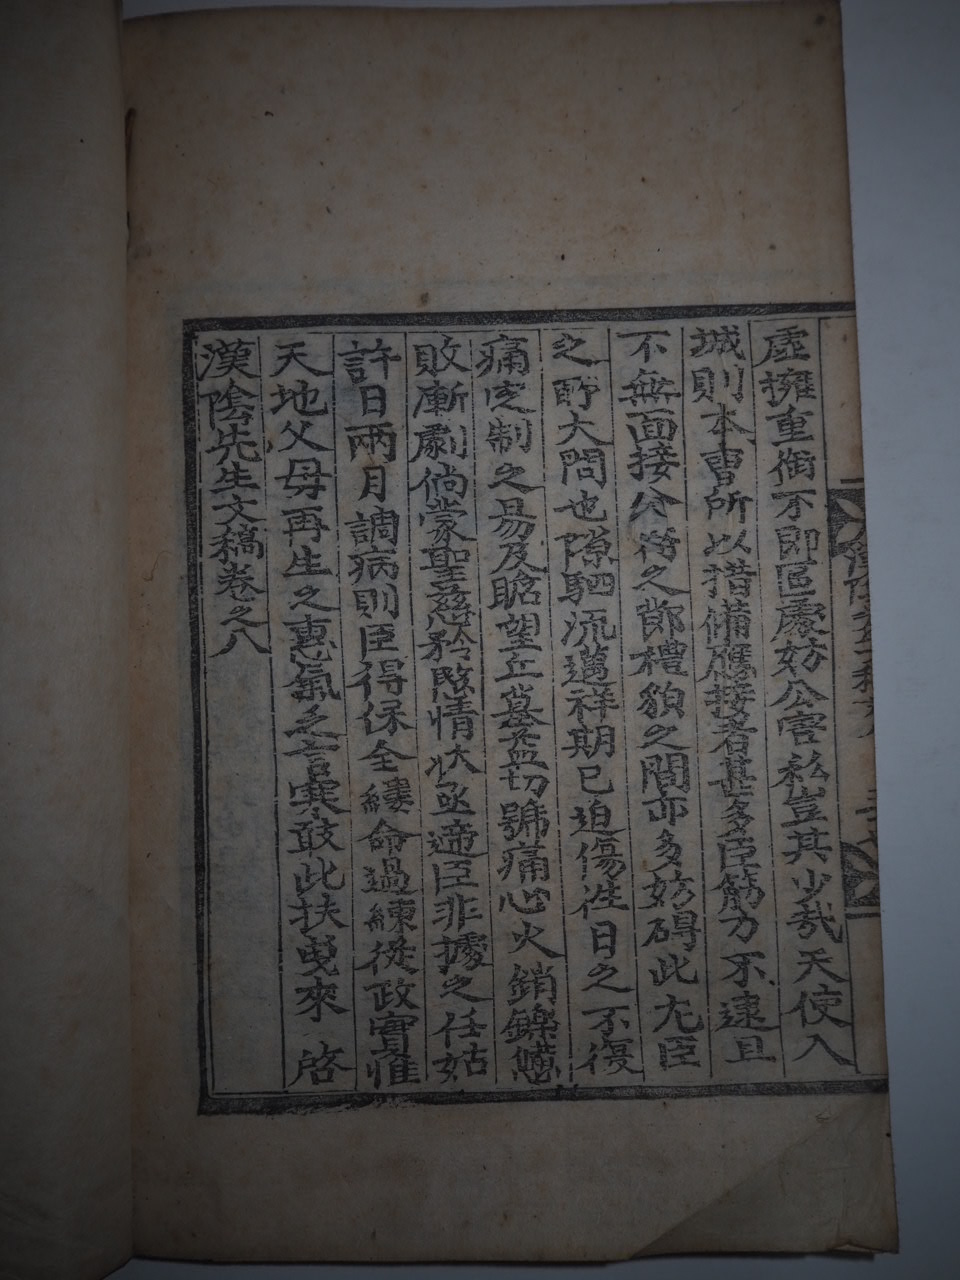 虛擁重衘不即區處妨公害私豈其少哉天使入
城則本曺所以措備應接者甚多臣筋力不逮且
不無面接分付之節禮貌之間亦多妨碍此尤臣
之所大悶也隙駟流邁祥期已迫傷往日之不復
痛定制之易及瞻望丘墓益切號痛心火銷鑠憊
敗漸劇倘蒙聖慈矜愍情狀亟遞臣非據之任姑
許日兩月調病則臣得保全縷命過練從政實惟
天地父母再生之惠氣乏言寒敢此扶曳來 啓
漢陰先生文稿卷之八